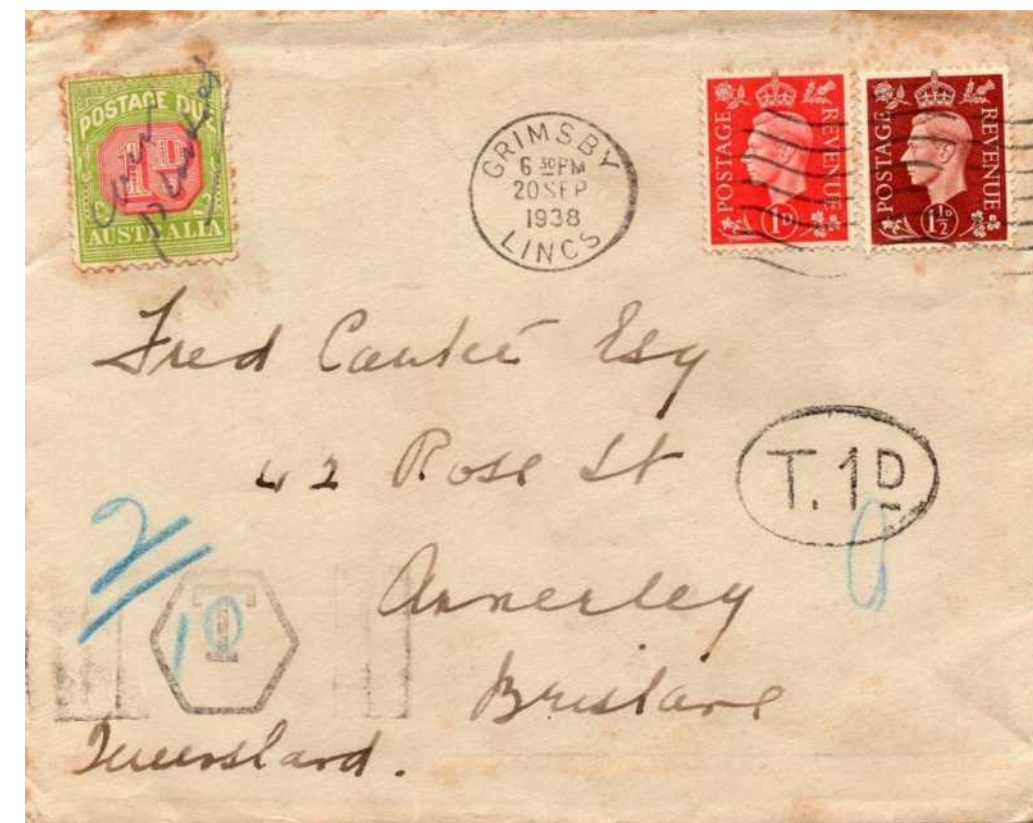 POSTAGE DUE
1D
AUSTRALIA
GRIMSBY
6 30 PM
20 SEP
1938
LINCS
POSTAGE REVENUE
1D
POSTAGE REVENUE
1½D
Fred Esq
42 Rose St
T. 1D
Annerley
Brisbane
Queensland.
2/
10
T